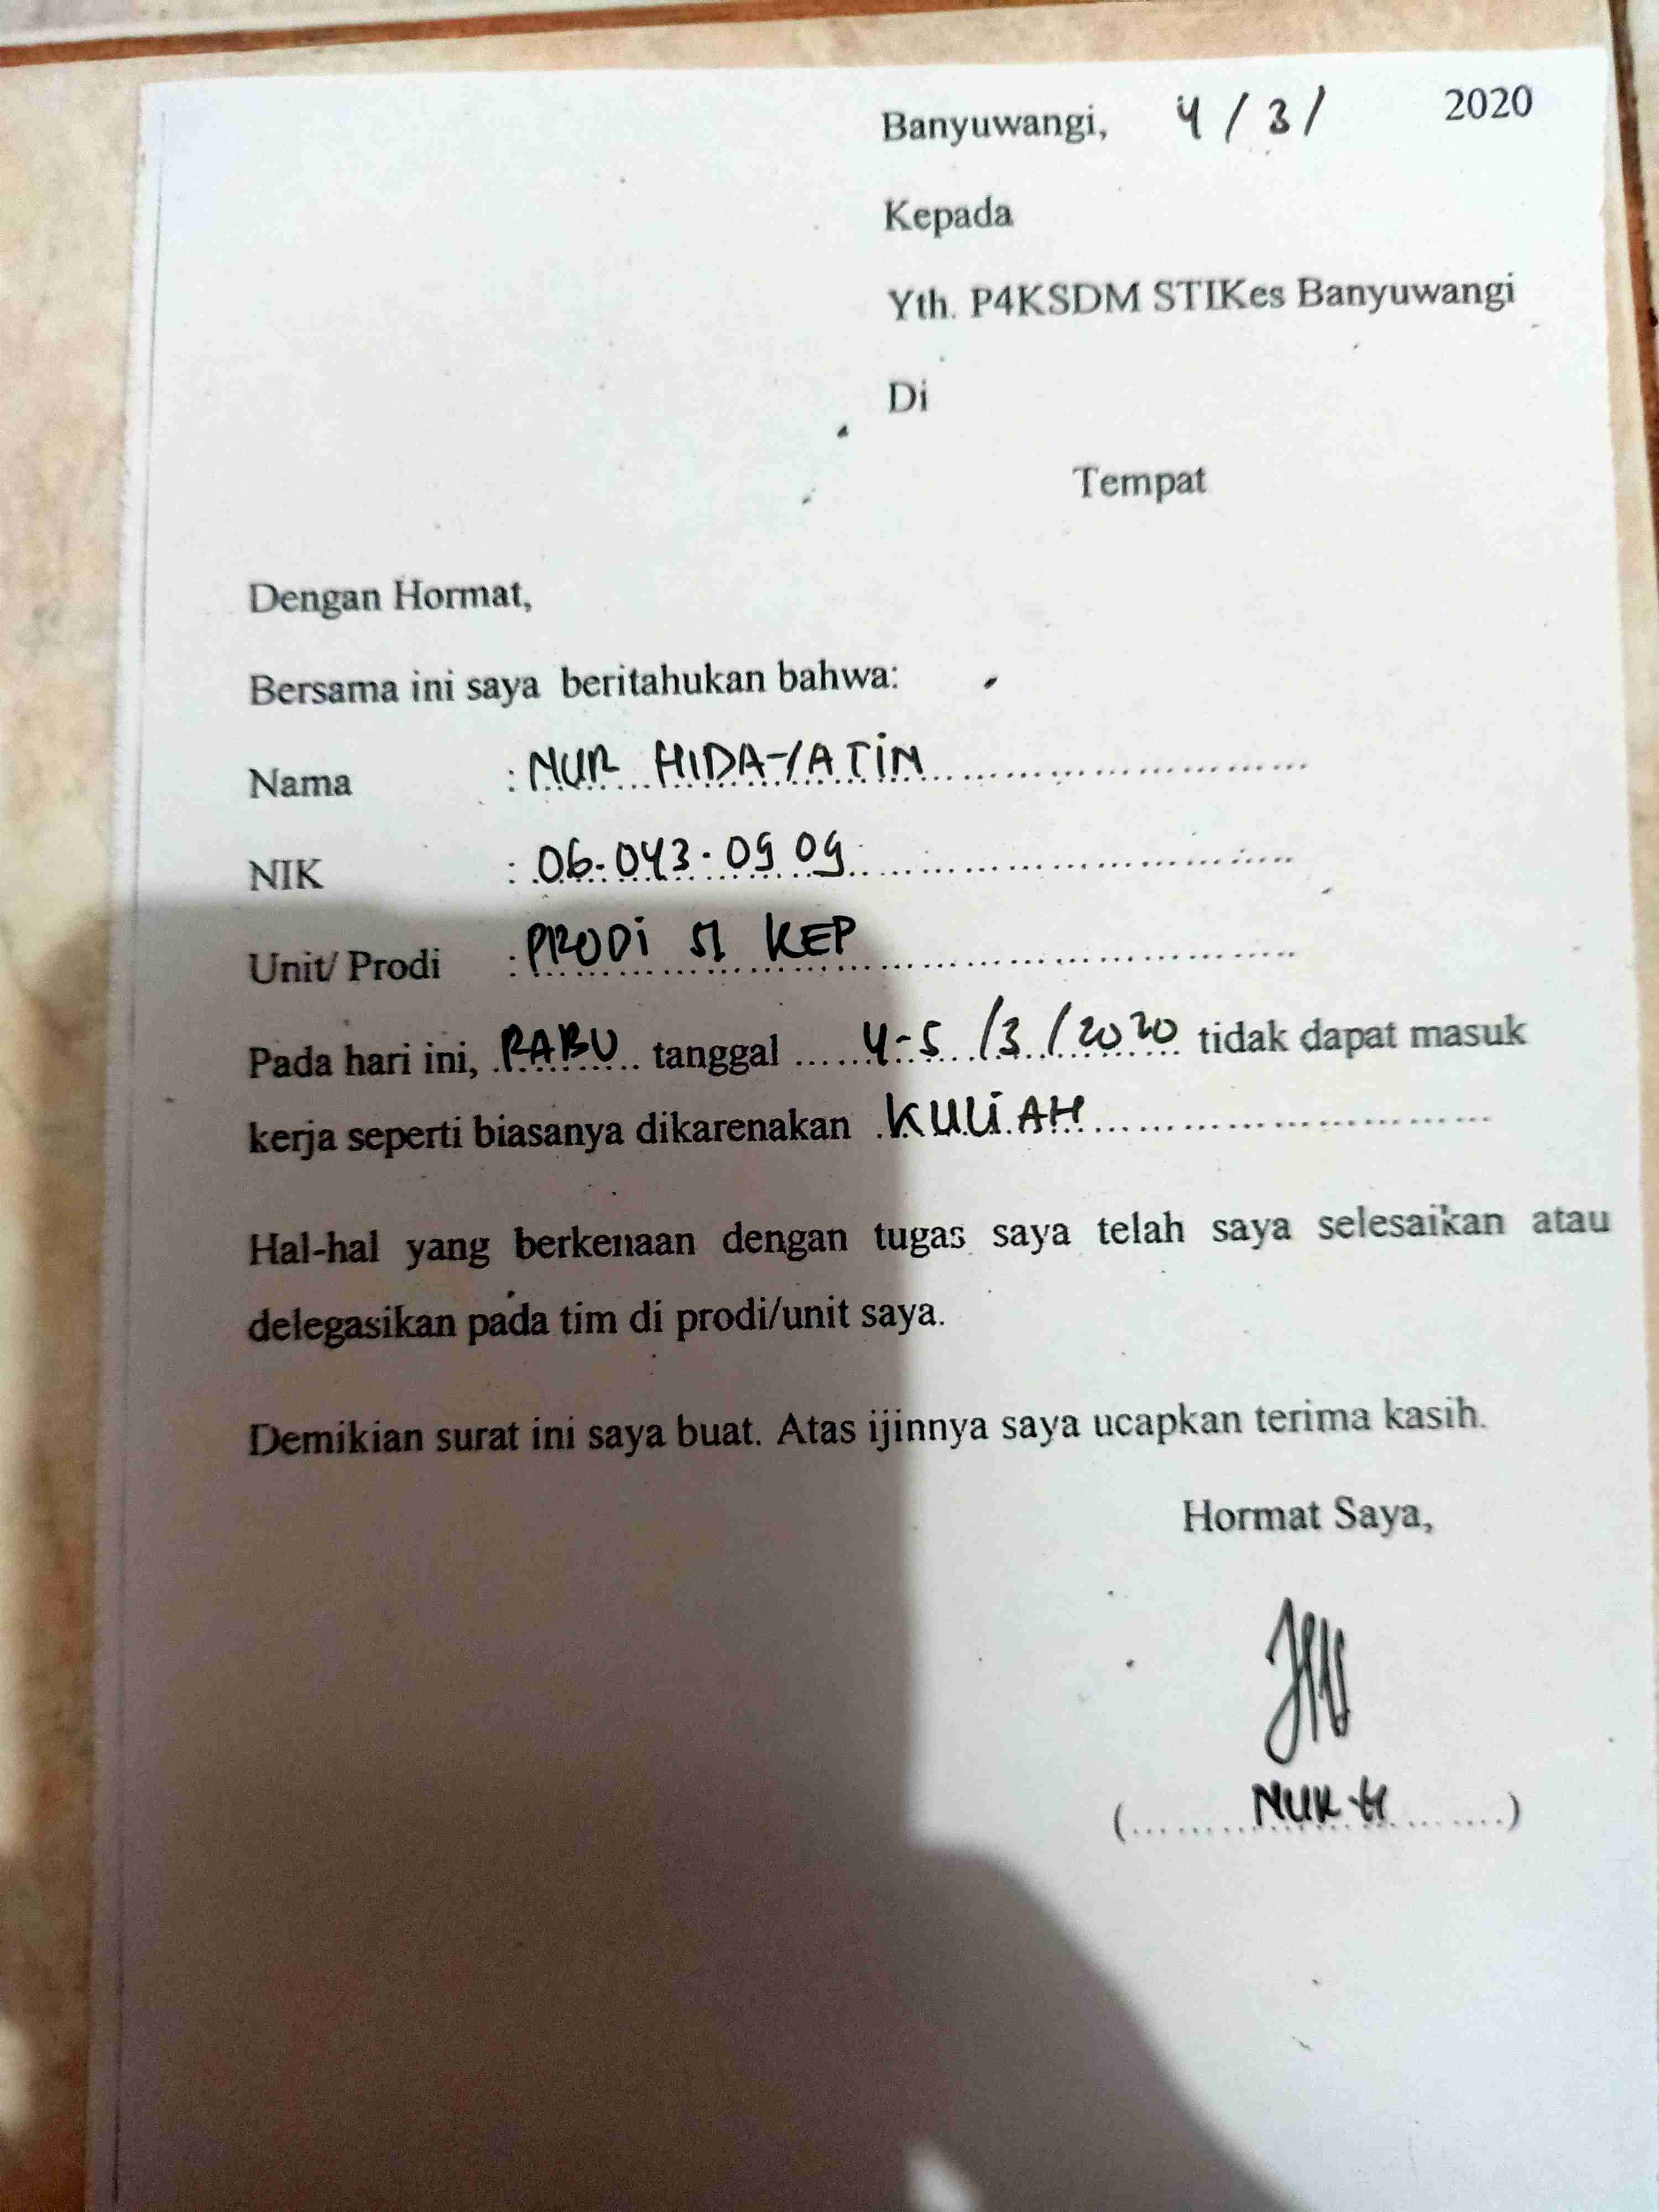 Banyuwangi, 4 / 3 / 2020
Kepada
Yth. P4KSDM STIKes Banyuwangi
Di
Tempat
Dengan Hormat,
Bersama ini saya beritahukan bahwa:
Nama : NUR HIDAYATIN
NIK : 06.043.0909
Unit/ Prodi : PRODI S1 KEP
Pada hari ini, RABU tanggal 4-5 /3 / 2020 tidak dapat masuk
kerja seperti biasanya dikarenakan KULIAH
Hal-hal yang berkenaan dengan tugas saya telah saya selesaikan atau
delegasikan pada tim di prodi/unit saya.
Demikian surat ini saya buat. Atas ijinnya saya ucapkan terima kasih.
Hormat Saya,
(NUR H)